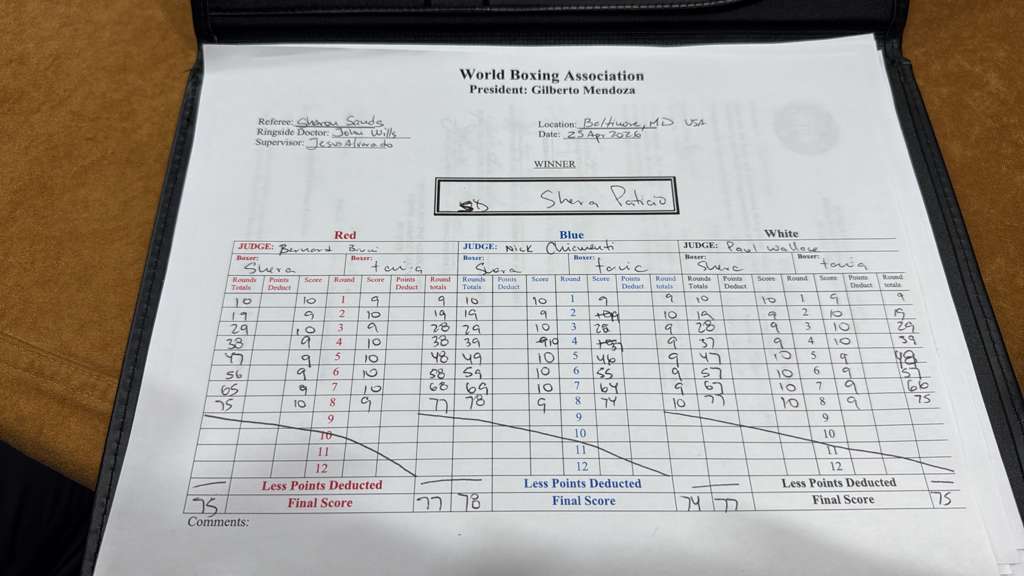 World Boxing Association
President: Gilberto Mendoza
Referee: Sharon Sands
Ringside Doctor: John Wills
Supervisor: Jesus Alvarado
Location: Baltimore, MD USA
Date: 25 Apr 2026
WINNER
SD Shera Paticio
Red Blue White
JUDGE: Bernard Bruni JUDGE: Nick Chiumenti JUDGE: Paul Wallace
Boxer: Boxer: Boxer: Boxer: Boxer: Boxer:
Shera Shera
Rounds Totals Points Deduct Score Round Score Points Deduct Round totals Rounds Totals Points Deduct Score Round Score Points Deduct Round totals Rounds Totals Points Deduct Score Round Score Points Deduct Round totals
10 10 1 9 9 10 10 1 9 9 10 10 1 9 9
19 9 2 10 19 19 9 2 10 19 9 2 10 19
29 10 3 9 28 29 10 3 28 9 28 9 3 10 29
38 9 4 10 38 39 10 4 37 9 37 9 4 10 39
47 9 5 10 48 49 10 5 46 9 47 10 5 9 48
56 9 6 10 58 59 10 6 55 9 57 10 6 9 57
65 9 7 10 68 69 10 7 64 9 67 10 7 9 66
75 10 8 9 77 78 9 8 74 10 77 10 8 9 75
9 9 9
10 10 10
11 11 11
12 12 12
Less Points Deducted Less Points Deducted Less Points Deducted
75 Final Score 77 78 Final Score 74 77 Final Score 75
Comments: